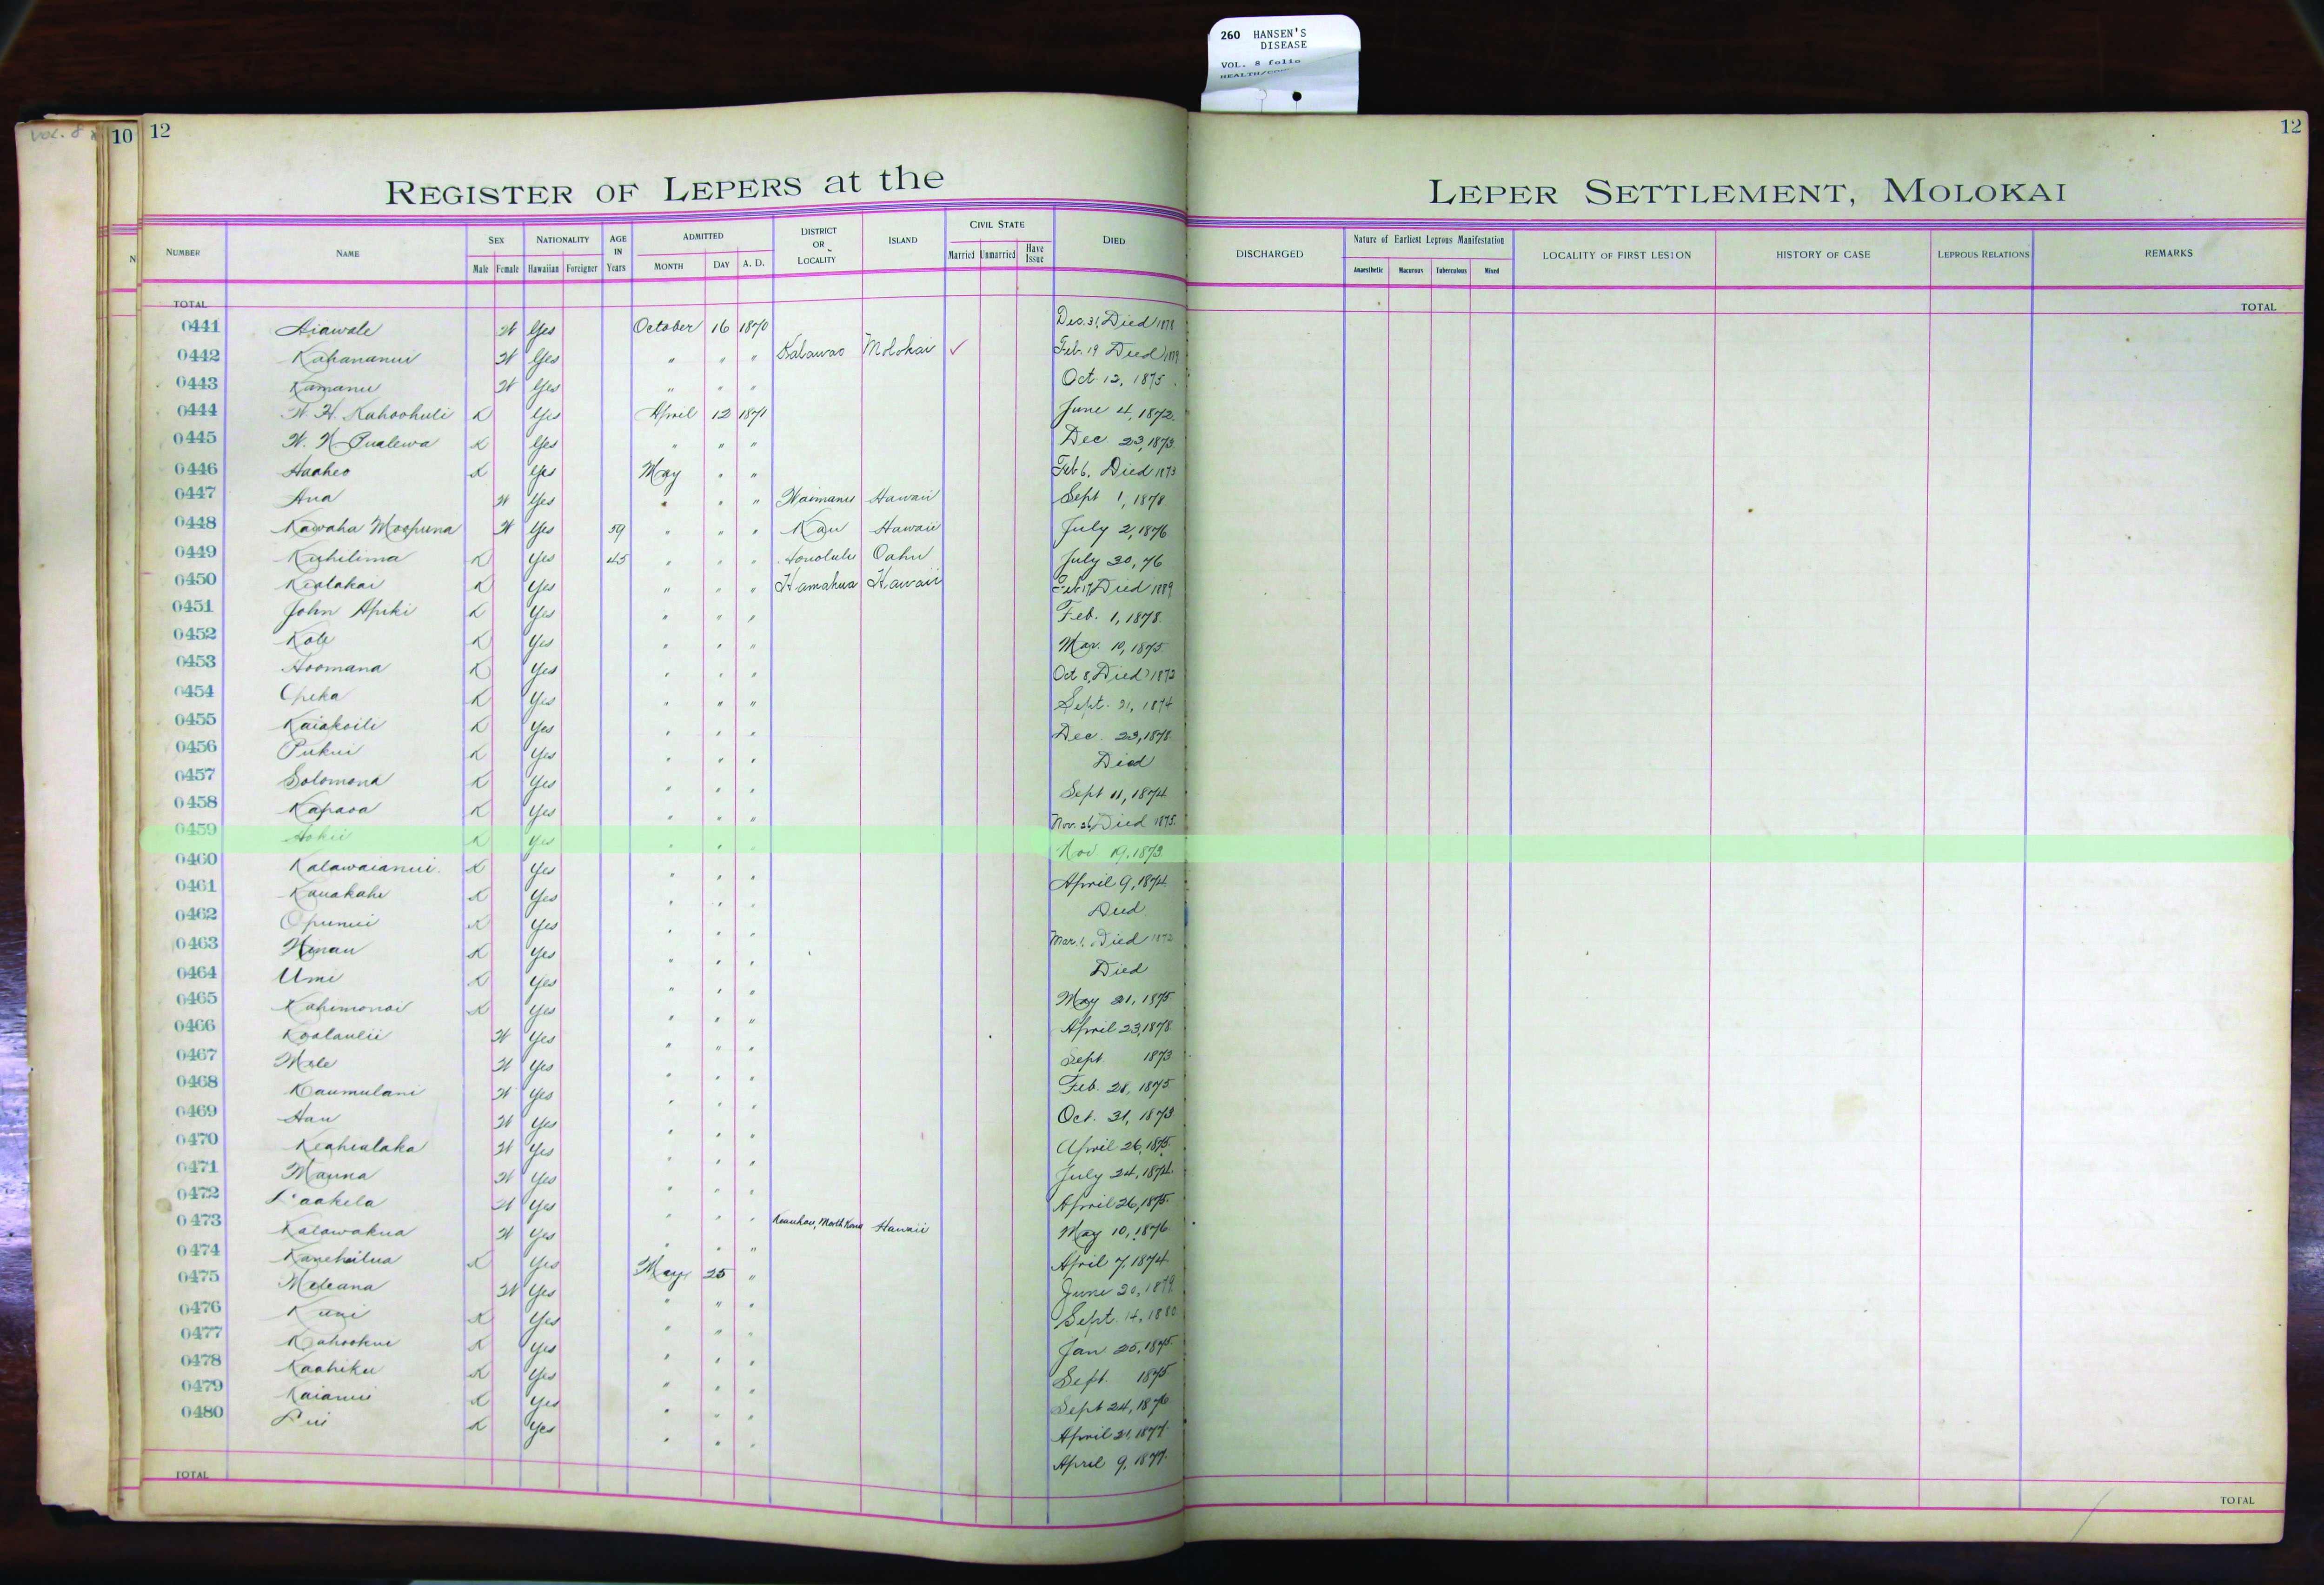 260 HANSEN'S
DISEASE
VOL. 8 folio
VOL. 8
10
12
12
REGISTER OF LEPERS at the LEPER SETTLEMENT, MOLOKAI
NUMBER NAME SEX NATIONALITY AGE IN Years ADMITTED DISTRICT OR LOCALITY ISLAND CIVIL STATE DIED DISCHARGED Nature of Earliest Leprous Manifestation LOCALITY OF FIRST LESION HISTORY OF CASE LEPROUS RELATIONS REMARKS
Male Female Hawaiian Foreigner MONTH DAY A. D. Married Unmarried Have Issue Anaesthetic Macurous Tuberculous Mixed
TOTAL TOTAL
0441 Aiawale W Yes October 16 1870 Dec. 31, Died 1878
0442 Kahananui W Yes " " " Kalawao Molokai ✓ Feb. 19 Died 1879
0443 Kamanu W Yes " " " Oct. 12, 1875
0444 W. H. Kahoohuli K Yes April 12 1871 June 4, 1872
0445 W. N. Pualewa K Yes " " " Dec 23, 1873
0446 Haaheo K Yes May " " Feb 6, Died 1873
0447 Ana W Yes " " " Waimanu Hawaii Sept 1, 1878
0448 Kawaha Moopuna W Yes 59 " " " Kau Hawaii July 2, 1876
0449 Kuhilima K Yes 45 " " " Honolulu Oahu July 30, 76
0450 Kealakai K Yes " " " Hamakua Hawaii Feb 17, Died 1889
0451 John Apiki K Yes " " " Feb. 1, 1878
0452 Kole K Yes " " " Mar. 10, 1875
0453 Hoomana K Yes " " " Oct 8, Died 1873
0454 Opeka K Yes " " " Sept. 21, 1874
0455 Kaiakoili K Yes " " " Dec. 23, 1878
0456 Pukui K Yes " " " Died
0457 Solomona K Yes " " " Sept 11, 1874
0458 Kapaoa K Yes " " " Nov. 26, Died 1875
0459 Hokii K Yes " " " Nov 19, 1873
0460 Kalawaianui K Yes " " " April 9, 1874
0461 Kauakahi K Yes " " " Died
0462 Opunui K Yes " " " Mar. 1, Died 1872
0463 Winau K Yes " " " Died
0464 Umi K Yes " " " May 21, 1875
0465 Kahimonai K Yes " " " April 23, 1878
0466 Koolaulii W Yes " " " Sept 1873
0467 Mele W Yes " " " Feb. 28, 1875
0468 Kaumulani W Yes " " " Oct. 31, 1873
0469 Hau W Yes " " " April 26, 1875
0470 Keahialaka W Yes " " " July 24, 1874
0471 Mauna W Yes " " " April 26, 1875
0472 Laakela W Yes " " "
0473 Kalawakua W Yes " " " Keauhou, North Kona Hawaii May 10, 1876
0474 Kanehailua K Yes May 25 " April 7, 1874
0475 Meleana W Yes " " " June 20, 1879
0476 Kuni K Yes " " " Sept. 14, 1880
0477 Kahookui K Yes " " " Jan 25, 1875
0478 Kaahiku K Yes " " " Sept. 1875
0479 Kaianui K Yes " " " Sept 24, 1876
0480 Lui K Yes " " " April 21, 1877
April 9, 1877
TOTAL TOTAL